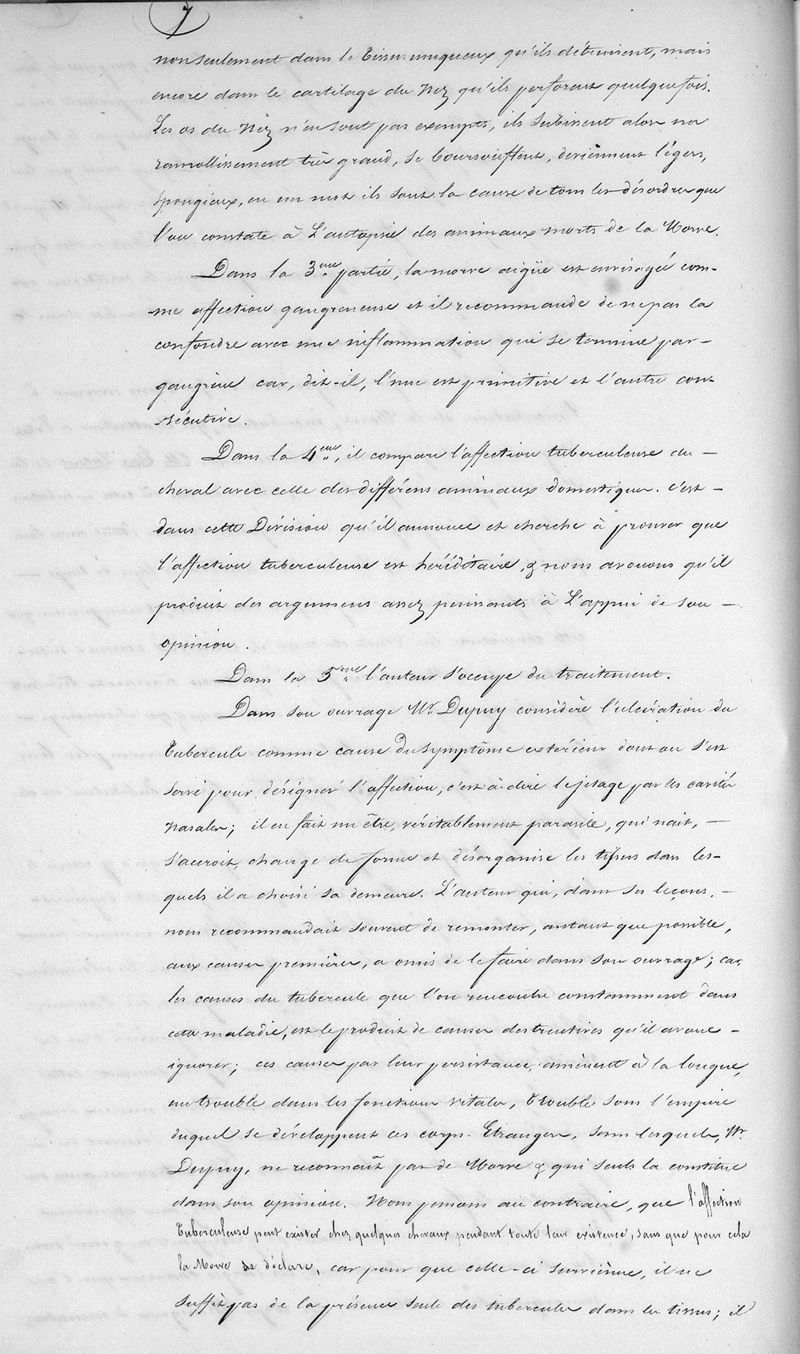 7
non seulement dans le tissu muqueux qu'ils détruisent, mais
encore dans le cartilage du Nez qu'ils perforent quelquefois.
Les os du Nez n'en sont pas exempts, ils subissent alors un
ramollissement très grand, se boursouflent, deviennent légers,
spongieux, en un mot ils sont la cause de tous les désordres que
l'on constate à L'autopsie des animaux morts de la Morve.
Dans la 3eme partie, la morve aigüe est envisagée com-
me affection gangreneuse et il recommande de ne pas la
confondre avec une inflammation qui se termine par -
gangrène car, dit-il, l'une est primitive et l'autre con-
sécutive.
Dans la 4eme, il compare l'affection tuberculeuse du -
cheval avec celle des différens animaux domestiques. c'est -
dans cette Division qu'il annonce et cherche à prouver que
l'affection tuberculeuse est héréditaire, & nous avouons qu'il
produit des argumens assez puissants à L'appui de son -
opinion.
Dans la 5eme l'auteur s'occupe du traitement.
Dans son ouvrage Mr Dupuy considère l'ulcération du
tubercule comme cause du symptôme extérieur dont on s'est
servi pour désigner l'affection, c'est à dire le jetage par les cavités
nasales; il en fait un être, véritablement parasite, qui nait, -
s'accroit, change de forme et désorganise les tissus dans les-
quels il a choisi sa demeure. L'auteur qui, dans ses leçons, -
nous recommandait souvent de remonter, autant que possible,
aux causes premières, a omis de le faire dans son ouvrage; car,
les causes du tubercule que l'on rencontre constamment dans
cette maladie, est le produit de causes destructives qu'il avoue -
ignorer; ces causes par leur persistance, amènent à la longue,
un trouble dans les fonctions vitales, trouble sous l'empire
duquel se développent ces corps Etrangers, sans lesquels, Mr
Dupuy, ne reconnaît pas de Morve & qui seuls la constitue
dans son opinion. Nous pensons au contraire, que l'affection
tuberculeuse peut exister chez quelques chevaux pendant toute leur existence, sans que pour cela
la Morve se déclare, car pour que celle-ci survienne, il ne
suffit pas de la présence seule des tubercules dans les tissus; il